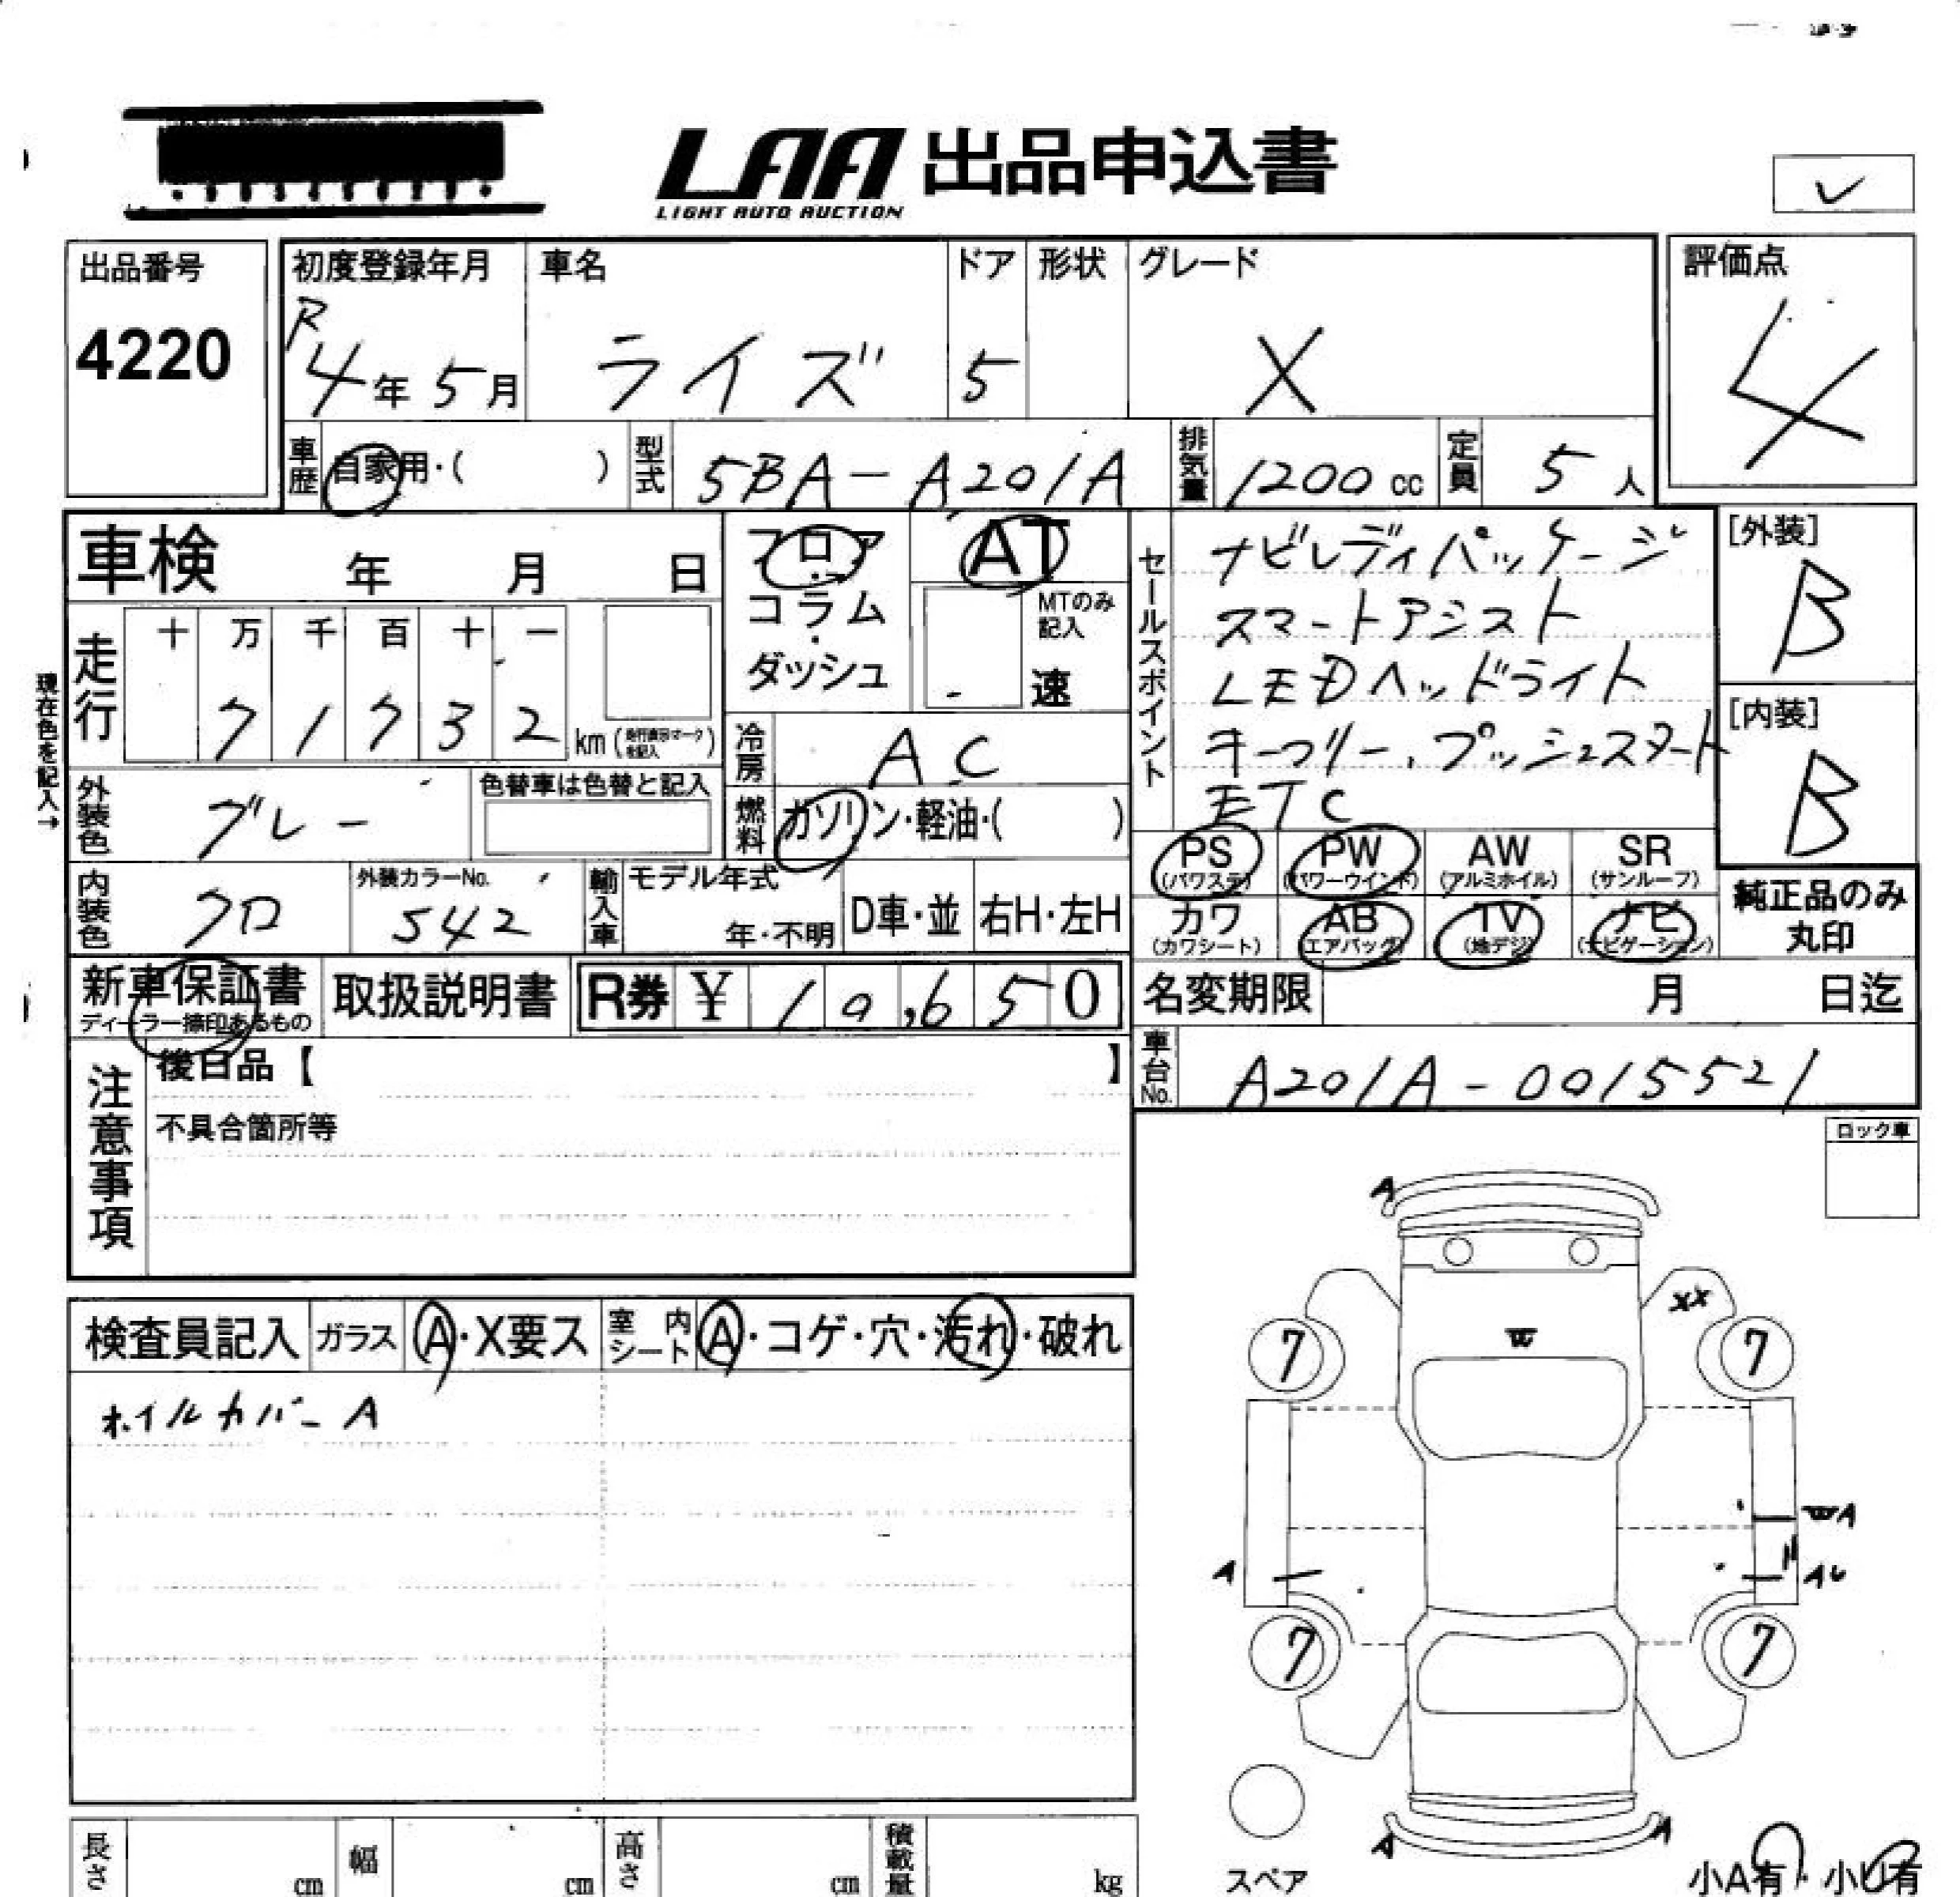 LAA 出品申込書
LIGHT AUTO AUCTION
出品番号
4220
初度登録年月
R4年5月
車名
ライズ
ドア
5
形状
グレード
X
評価点
4
車歴
自家用・( )
型式
5BA-A201A
排気量
1200 cc
定員
5人
車検 年 月 日
フロア・コラム・ダッシュ
AT
MTのみ記入
速
セールスポイント
ナビレディパッケージ
スマートアシスト
LEDヘッドライト
キーフリー、プッシュスタート
ETC
[外装]
B
[内装]
B
現在色を記入→
走行
十 万 千 百 十 一
7 1 7 3 2 km (走行表示マークを記入)
冷房
AC
外装色
グレー
色替車は色替と記入
燃料
ガソリン・軽油・( )
PS (パワステ)
PW (パワーウインド)
AW (アルミホイル)
SR (サンルーフ)
カワ (カワシート)
AB (エアバッグ)
TV (地デジ)
ナビ (ナビゲーション)
純正品のみ丸印
内装色
クロ
外装カラーNo.
542
輸入車
モデル年式
年・不明
D車・並
右H・左H
新車保証書
ディーラー捺印あるもの
取扱説明書
R券 ¥ 10,650
名変期限 月 日迄
車台No.
A201A-0015521
注意事項
後日品【 】
不具合箇所等
ロック車
検査員記入
ガラス
A・X要ス
室内シート
A・コゲ・穴・汚れ・破れ
ホイルカバーA
A
XX
W
7
7
WA
A
AU
7
7
A
A
スペア
小A有・小U有
長さ cm
幅 cm
高さ cm
積載量 kg